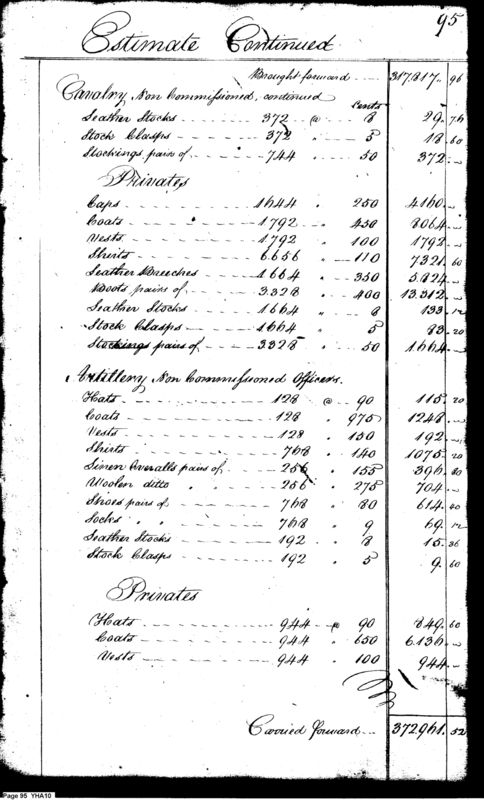 95
Estimate Continued
Brought forward ..... 317.817.. 96
Cavalry Non Commissioned, continued
Cents
Leather Stocks - - - - 372 @ - - 8 29. 76
Stock Clasps - - - - 372 " - - 5 18. 60
Stockings pairs of - - - - 744 " - - 50 372. "
Privates
Caps - - - - 1644 " 250 4160. "
Coats - - - - 1792 " 450 8064. "
Vests - - - - 1792 " 100 1792. "
Shirts - - - - 6656 " 110 7321. 60
Leather Breeches - - - - 1664 " 350 5.824. "
Boots pairs of - - - - 3.328 " 400 13.312. "
Leather Stocks - - - - 1664 " 8 133. 12
Stock Clasps - - - - 1664 " 5 83. 20
Stockings pairs of - - - - 3328 " 50 1664. "
Artillery Non Commissioned Officers.
Hats - - - - 128 @ 90 115. 20
Coats - - - - 128 " 975 1248. "
Vests - - - - 128 " 150 192. "
Shirts - - - - 768 " 140 1075. 20
Linen Overalls pairs of - - - - 256 " 155 396. 80
Woolen ditto " - - - - 256 " 275 704. "
Shoes pairs of - - - - 768 " 80 614. 40
Socks " " - - - - 768 " 9 69. 12
Leather Stocks - - - - 192 " 8 15. 36
Stock Clasps - - - - 192 " 5 9. 60
Privates
Hats - - - - 944 @ 90 849. 60
Coats - - - - 944 " 650 6.136. "
Vests - - - - 944 " 100 944. "
Carried forward ... 372961. 52
Page 95 YHA10